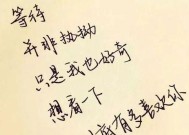 等待
并非执拗
只是我也好奇
想看一下
有多喜欢你